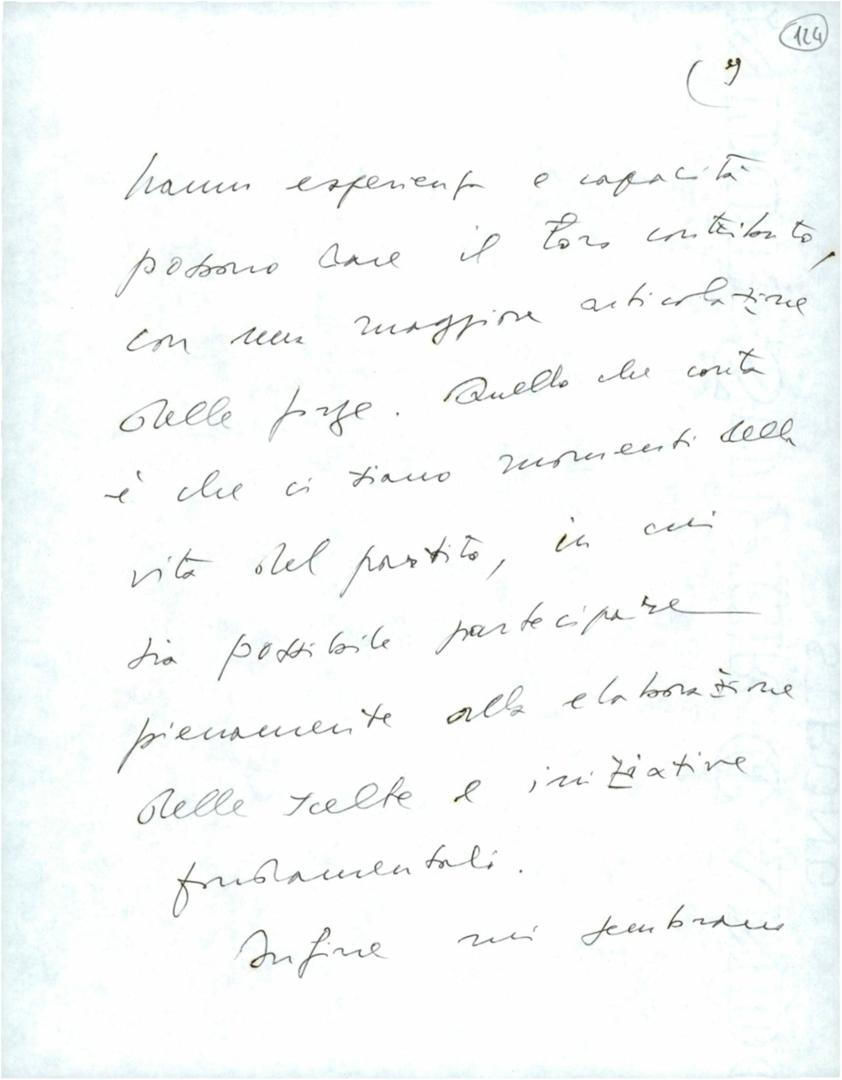 124
hanno esperienza e capacità
possono dare il loro contributo,
con una maggiore articolazione
delle forze. Quello che conta
è che ci siano momenti della
vita del partito, in cui
sia possibile partecipare
pienamente alla elaborazione
delle scelte e iniziative
fondamentali.
Infine mi sembrano